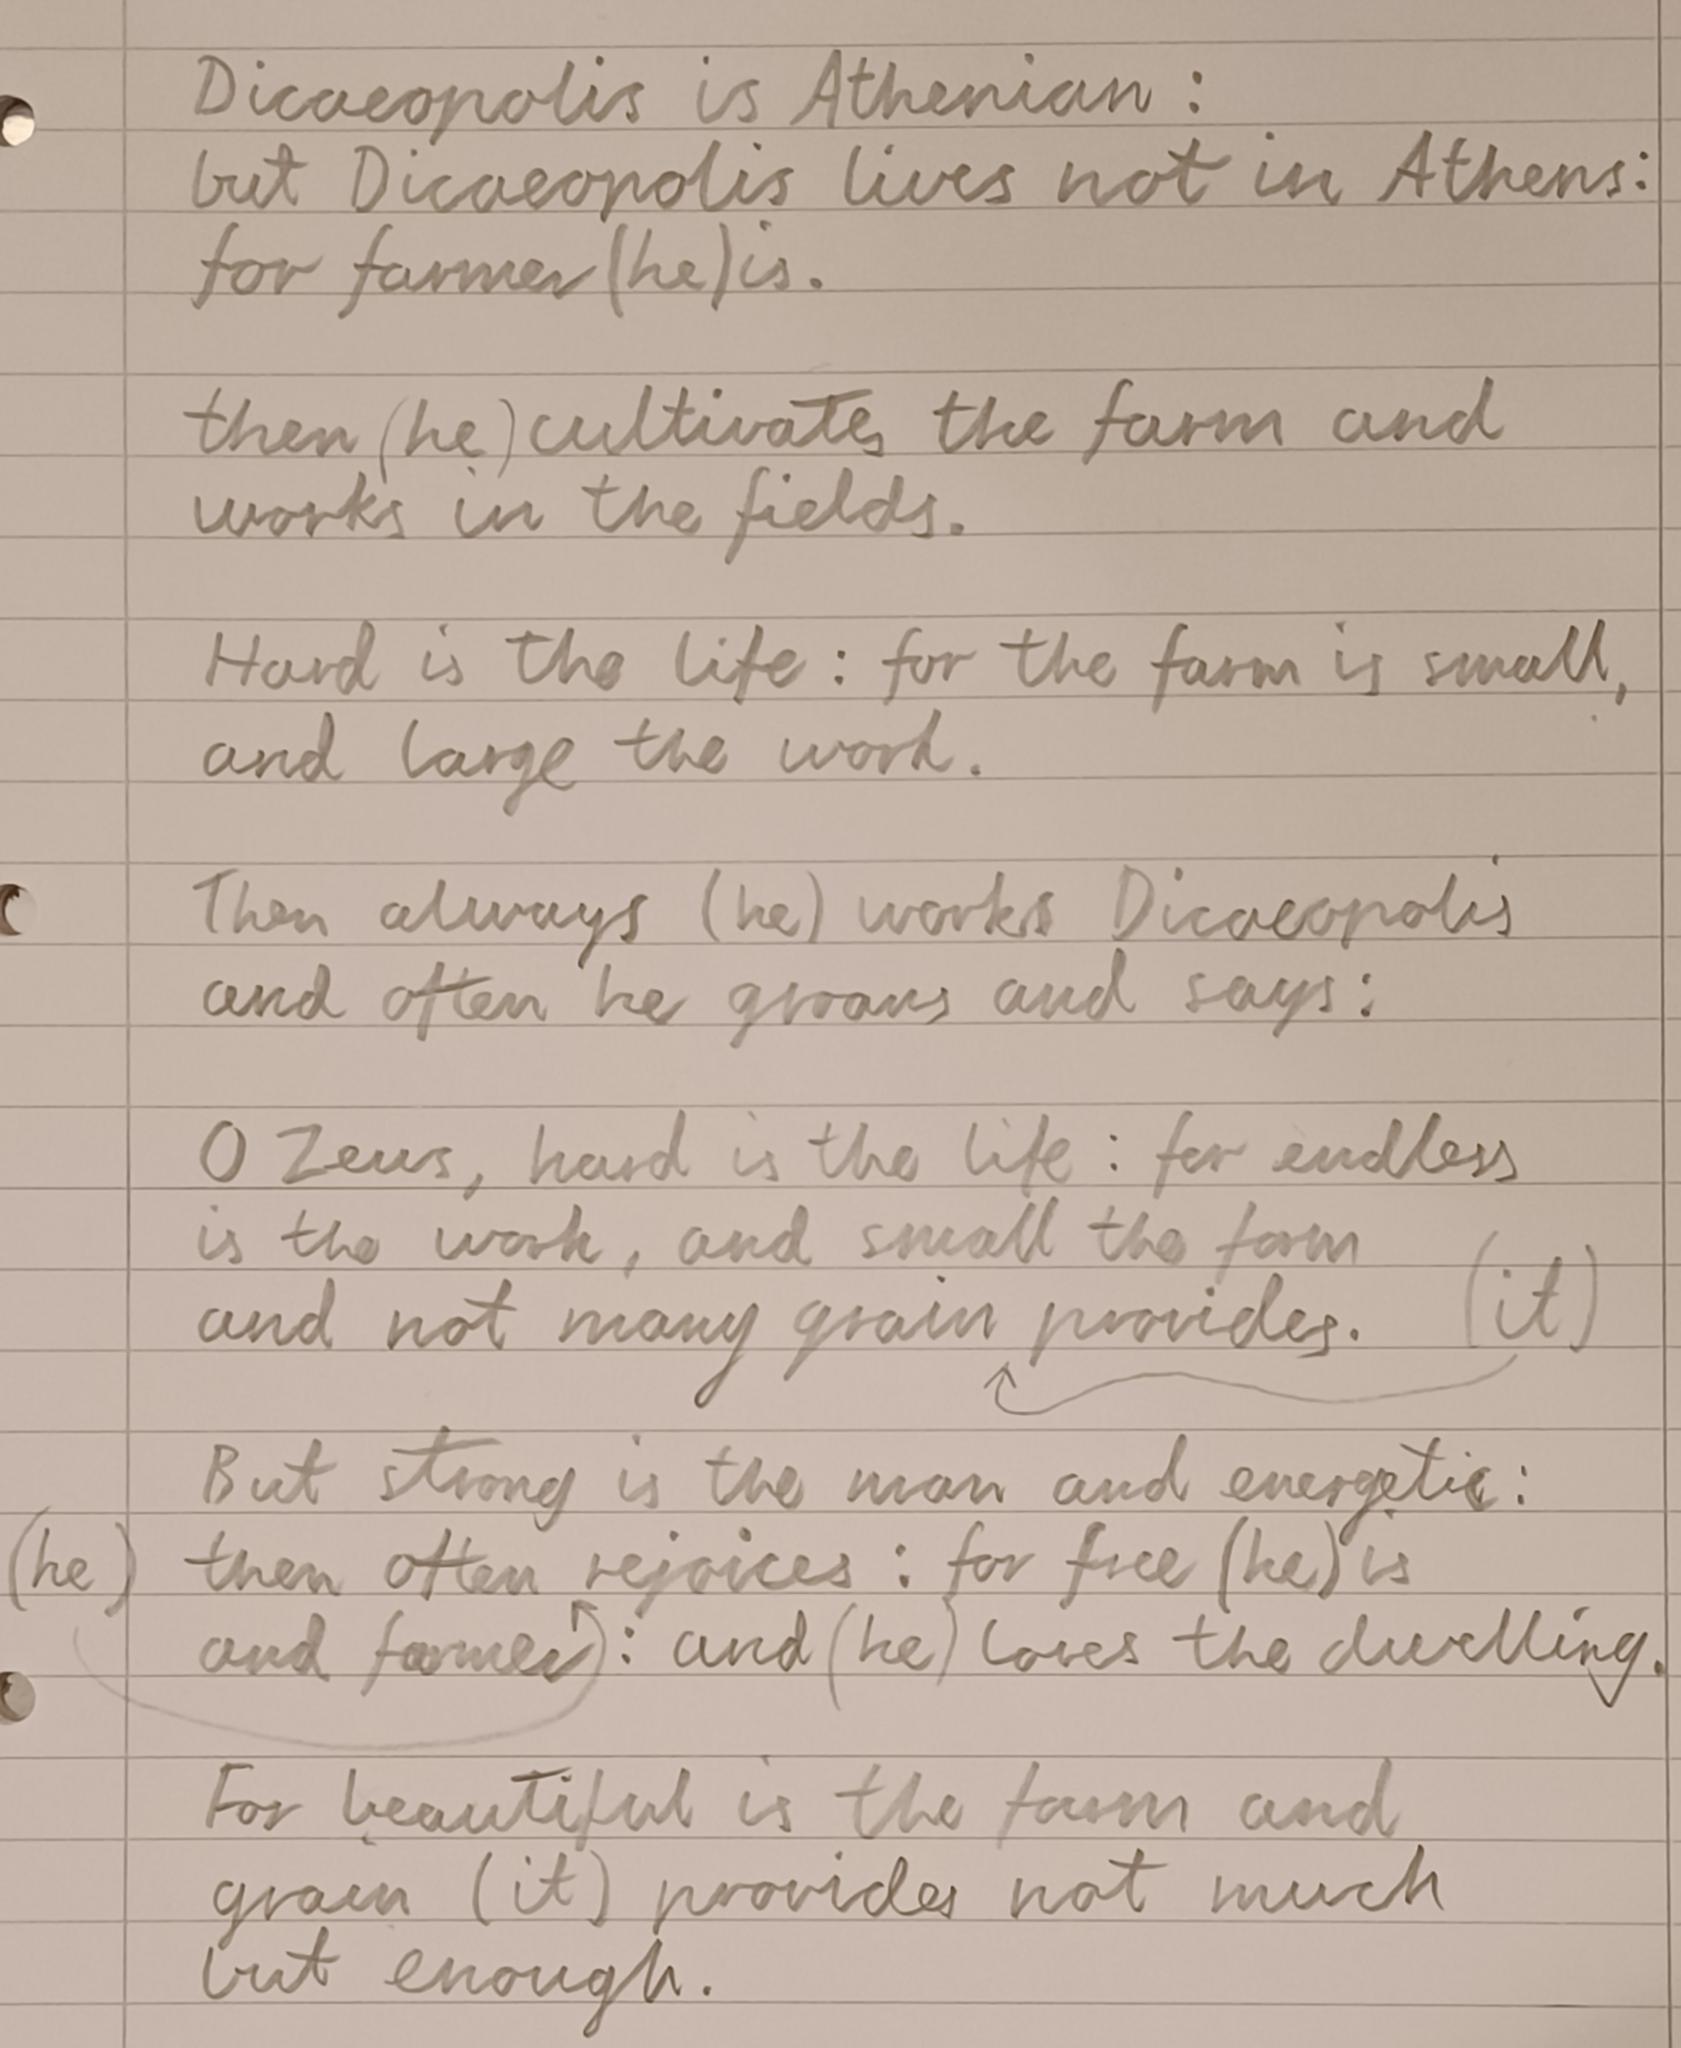 Dicaeopolis is Athenian :
but Dicaeopolis lives not in Athens:
for farmer (he) is.
then (he) cultivates the farm and
works in the fields.
Hard is the life : for the farm is small,
and large the work.
Then always (he) works Dicaeopolis
and often he groans and says:
O Zeus, hard is the life : for endless
is the work, and small the farm
and not many grain provides. (it)
But strong is the man and energetic:
(he) then often rejoices : for free (he) is
and farmer : and (he) loves the dwelling.
For beautiful is the farm and
grain (it) provides not much
but enough.